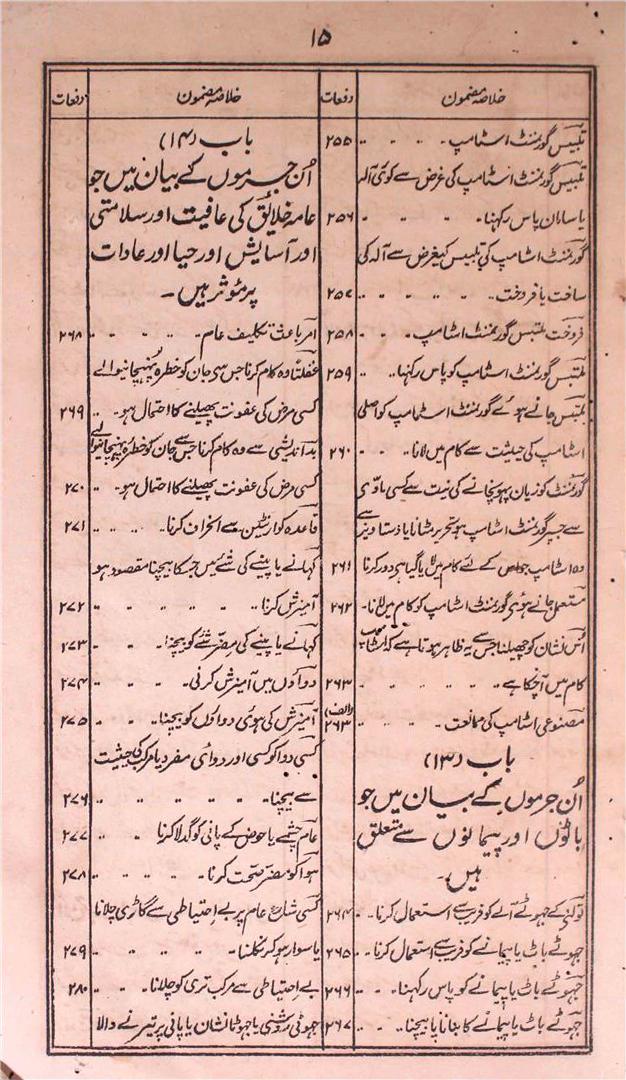 ۱۵
خلاصہ مضمون
دفعات
تلبیس گورنمنٹ اسٹامپ - ۔۔ ۔۔ ۲۵۵
تلبیس گورنمنٹ اسٹامپ کی غرض سے کوئی آلہ
یا سامان پاس رکھنا - ۔۔ ۔۔ ۲۵۶
گورنمنٹ اسٹامپ کی تلبیس کیغرض سے آلہ کی
ساخت یا فروخت - ۔۔ ۔۔ ۲۵۷
فروخت ملتبس گورنمنٹ اسٹامپ - ۔۔ ۲۵۸
ملتبس گورنمنٹ اسٹامپ کو پاس رکھنا - ۔۔ ۲۵۹
ملتبس جانے ہوئے گورنمنٹ اسٹامپ کو اصلی
اسٹامپ کی حیثیت سے کام میں لانا - ۔۔ ۲۶۰
گورنمنٹ کو زیان پہونچانے کی نیت سے کسی مادّی
سے جسپر گورنمنٹ اسٹامپ ہو تحریر مٹانا یا دستاویز سے
وہ اسٹامپ جو اس کے لئے کام میں لایا گیا ہو دور کرنا ۲۶۱
مستعمل جانے ہوئی گورنمنٹ اسٹامپ کو کام میں لانا - ۲۶۲
اُس نشان کو چھیلنا جس سے یہ ظاہر ہوتا ہے کہ اسٹامپ
کام میں آچکا ہے - ۔۔ ۔۔ ۲۶۳
مصنوعی اسٹامپ کی ممانعت - ۔۔ ۲۶۳ (الف)
باب (۱۳)
اُن جرموں کے بیان میں جو
باٹوں اور پیمانوں سے متعلق
ہیں -
تولنے کے جھوٹے آلے کو فریب سے استعمال کرنا - ۲۶۴
جھوٹے باٹ یا پیمانے کو فریب سے استعمال کرنا - ۲۶۵
جھوٹے باٹ یا پیمانے کو پاس رکھنا - ۔۔ ۲۶۶
جھوٹے باٹ یا پیمانے کا بنانا یا بیچنا - ۔۔ ۲۶۷
خلاصہ مضمون
دفعات
باب (۱۴)
اُن جرموں کے بیان میں جو
عامہ خلائق کی عافیت اور سلامتی
اور آسایش اور حیا اور عادات
پر مؤثر ہیں -
امر باعث تکلیف عام - ۔۔ ۔۔ ۲۶۸
غفلتاً وہ کام کرنا جس سے جان کو خطرہ پہنچانیوالے
کسی مرض کی عفونت پھیلنے کا احتمال ہو - ۔۔ ۲۶۹
بداندیشی سے وہ کام کرنا جس سے جان کو خطرہ پہنچانیوالے
کسی مرض کی عفونت پھیلنے کا احتمال ہو - ۔۔ ۲۷۰
قاعدہ کوارنٹین سے انحراف کرنا - ۔۔ ۔۔ ۲۷۱
کھانے یا پینے کی شئے میں جسکا بیچنا مقصود ہو
آمیزش کرنا - ۔۔ ۔۔ ۔۔ ۲۷۲
کھانے یا پینے کی مضر شئے کو بیچنا - ۔۔ ۲۷۳
دواؤں میں آمیزش کرنی - ۔۔ ۔۔ ۲۷۴
آمیزش کی ہوئی دواؤں کو بیچنا - ۔۔ ۲۷۵
کسی دوا کو کسی اور دوائی مفرد یا مرکب کی حیثیت
سے بیچنا - ۔۔ ۔۔ ۔۔ ۲۷۶
عام چشمے یا حوض کے پانی کو گدلا کرنا ۔۔ ۲۷۷
ہوا کو مضر صحت کرنا - ۔۔ ۔۔ ۲۷۸
کسی شارع عام پر بے احتیاطی سے گاڑی چلانا
یا سوار ہو کر نکلنا - ۔۔ ۔۔ ۲۷۹
بے احتیاطی سے مرکب تری کو چلانا - ۔۔ ۲۸۰
جھوٹی روشنی یا جھوٹا نشان یا پانی پر تیرنے والا